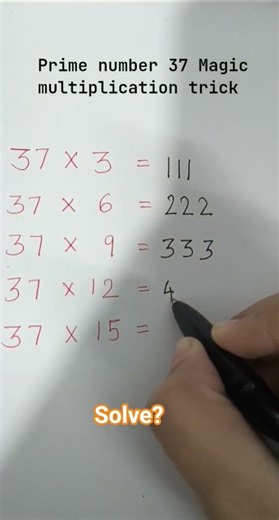 Prime number 37 Magic
multiplication trick
37 × 3 = 111
37 × 6 = 222
37 × 9 = 333
37 × 12 = 4
37 × 15 =
Solve?